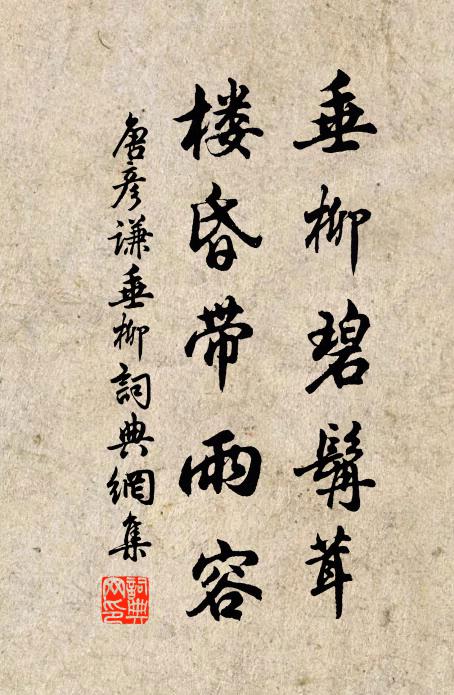 垂柳碧鬅茸
楼昏带雨容
唐彦謙垂柳詞典網集
詞典
网印